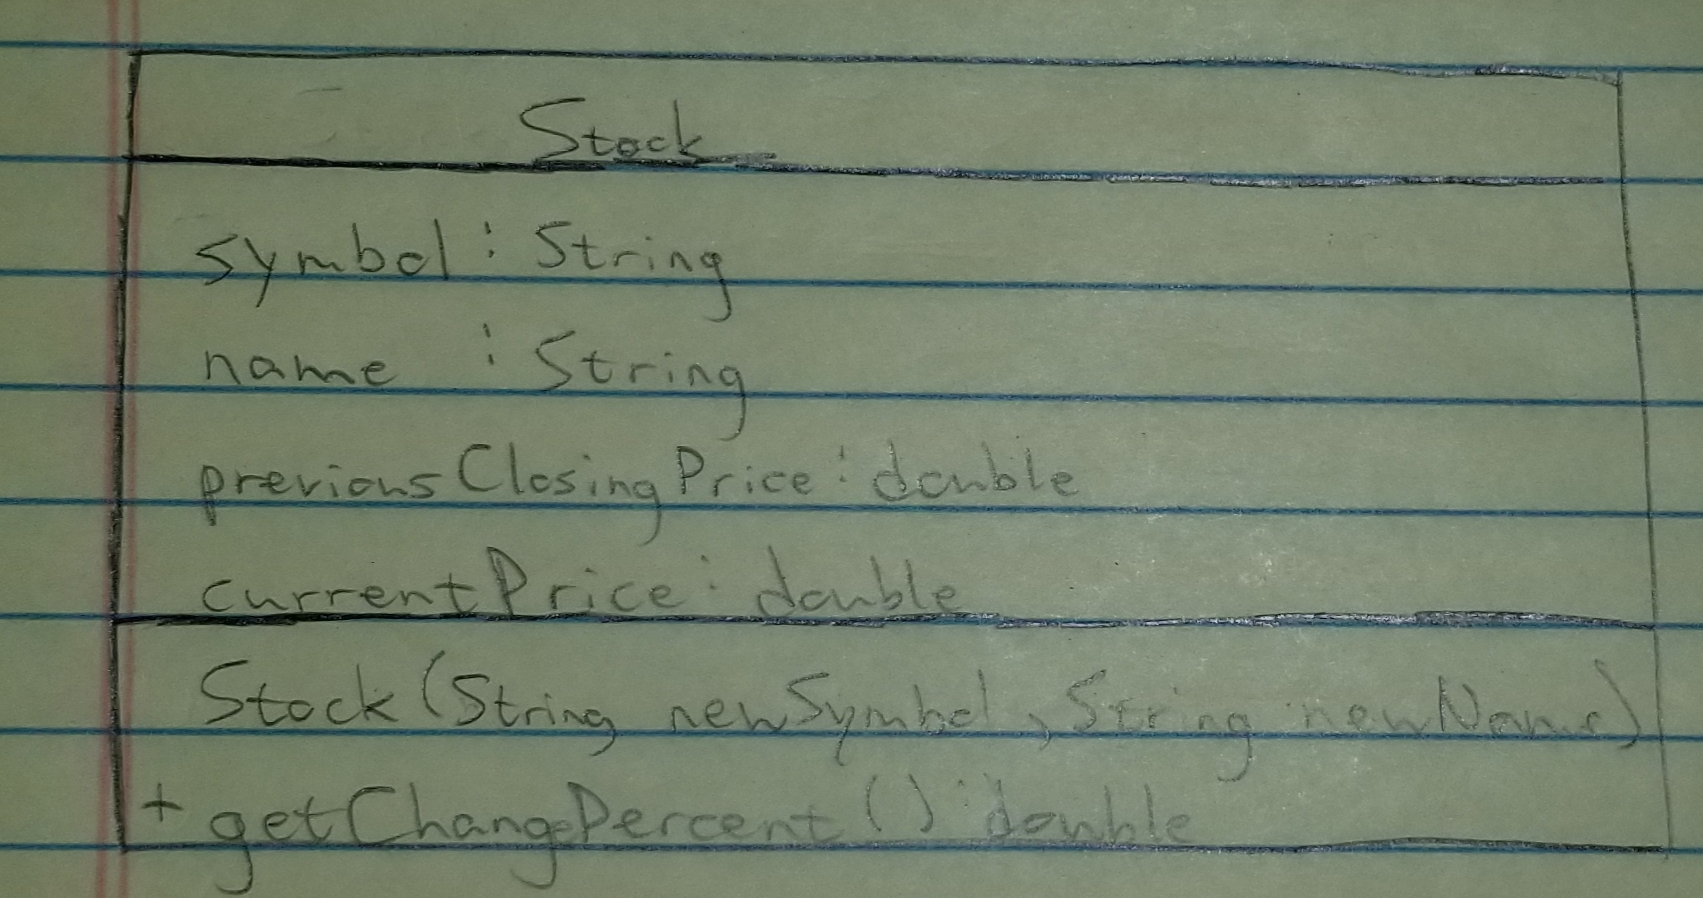 Stock
symbol : String
name : String
previousClosingPrice : double
currentPrice : double
Stock (String newSymbol, String newName)
+ getChangePercent () : double